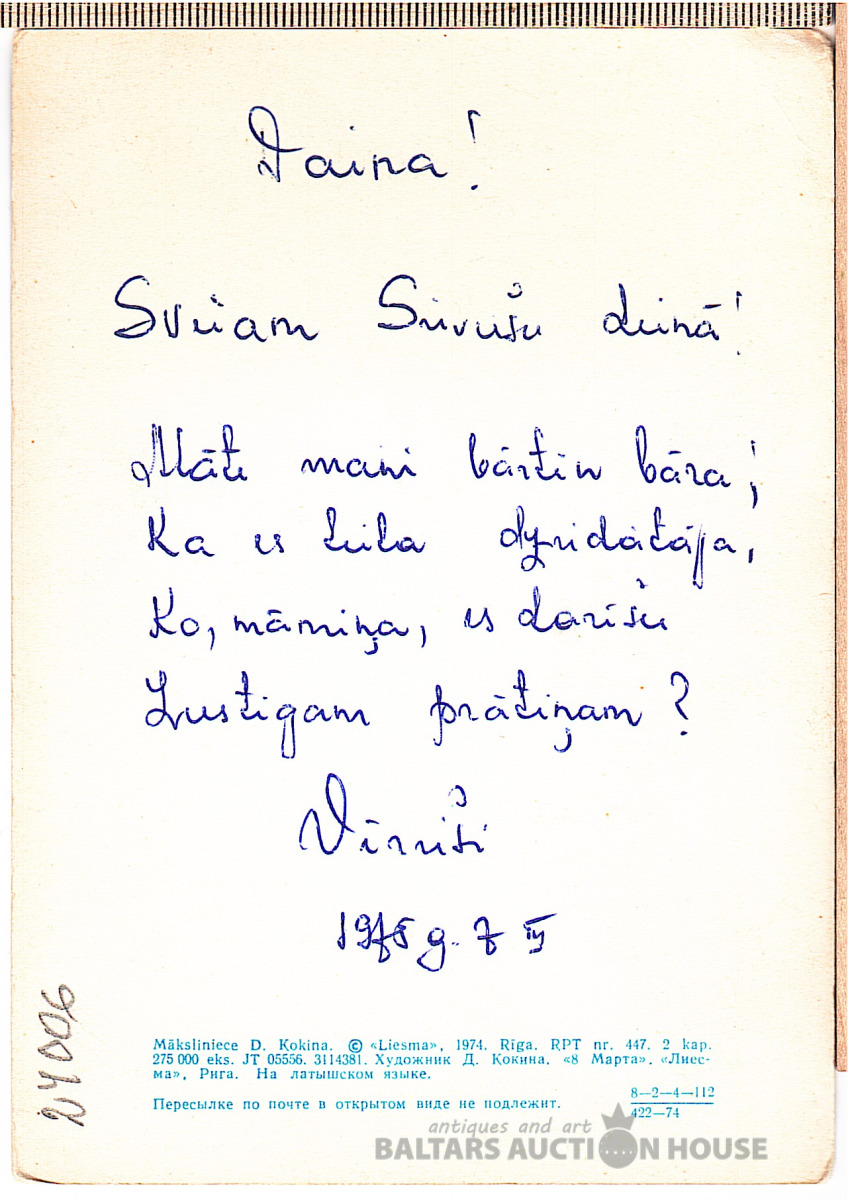 Daina!
Sveicam Sieviešu dienā!
Māte mani bārtin bāra,
Ka es liela dziedātāja,
Ko, māmiņa, es darīšu
Lustīgam prātiņam?
Vīrieši
1975 g. 7 III
24006
Māksliniece D. Ķokina. © «Liesma», 1974. Rīga. RPT nr. 447. 2 kap.
275 000 eks. JT 05556. 3114381. Художник Д. Кокина. «8 Марта». «Лиес-
ма», Рига. На латышском языке.
8—2—4—112
Пересылке по почте в открытом виде не подлежит.
422—74
antiques and art
BALTARS AUCTION HOUSE